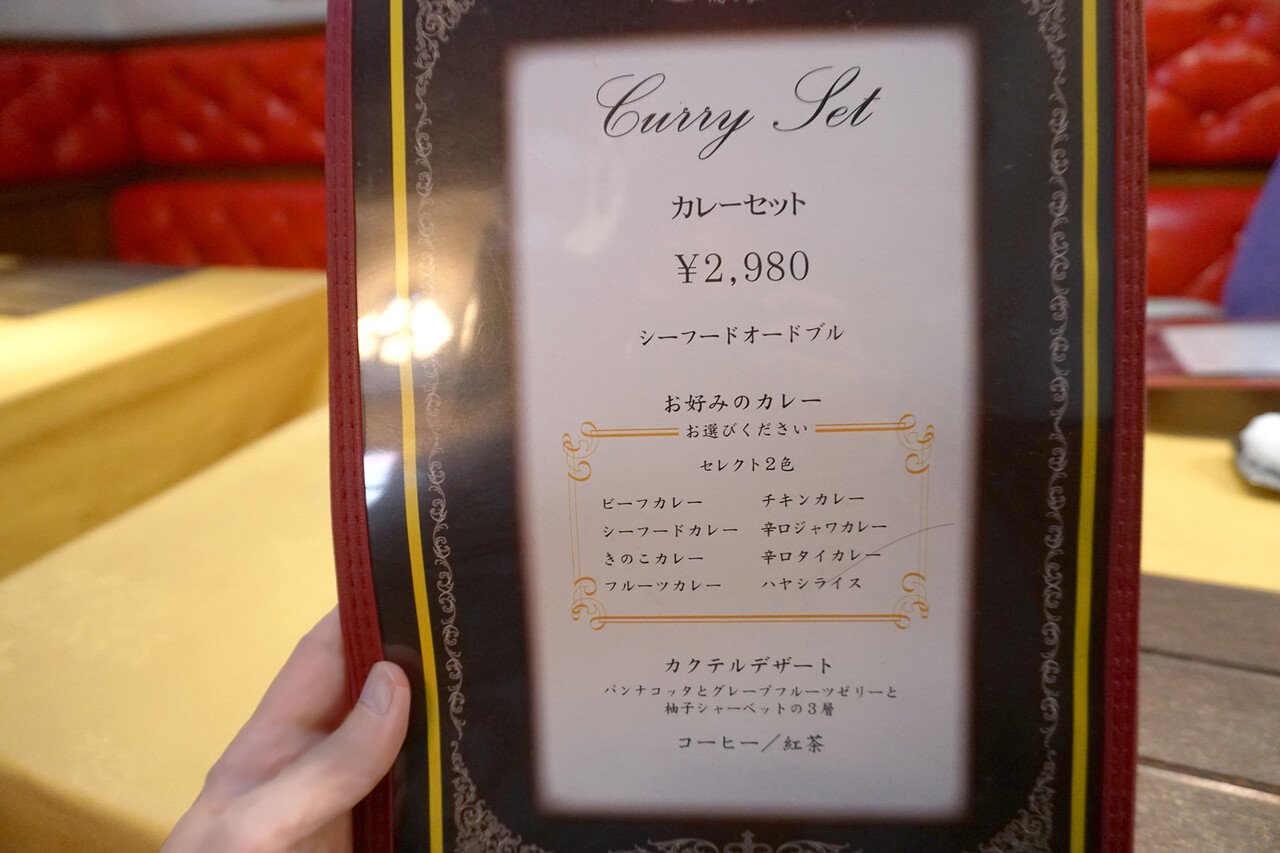 Curry Set
カレーセット
¥2,980
シーフードオードブル
お好みのカレー
お選びください
セレクト2色
ビーフカレー　チキンカレー
シーフードカレー　辛口ジャワカレー
きのこカレー　辛口タイカレー
フルーツカレー　ハヤシライス
カクテルデザート
パンナコッタとグレープフルーツゼリーと
柚子シャーベットの3層
コーヒー／紅茶